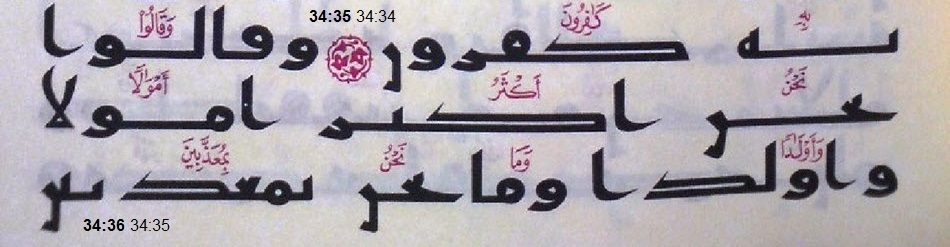 34:35 34:34
بِهِۦ كَٰفِرُونَ وَقَالُوا۟
به كفرون وقالوا
نَحْنُ أَكْثَرُ أَمْوَٰلًا
نحن اكثر امولا
وَأَوْلَٰدًا وَمَا نَحْنُ بِمُعَذَّبِينَ
واولدا وما نحن بمعذبين
34:36 34:35